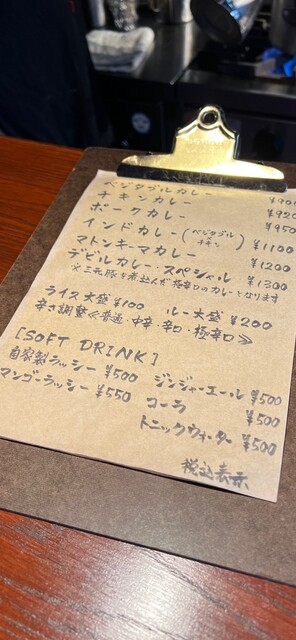 ベジタブルカレー ¥900
チキンカレー ¥920
ポークカレー ¥950
インドカレー (ベジタブル チキン) ¥1100
マトンキーマカレー ¥1200
デビルカレー・スペシャル ¥1300
※三元豚を煮込んだ極辛口のカレーとなります
ライス大盛¥100 ルー大盛¥200
辛さ調整≪普通・中辛・辛口・極辛口≫
[SOFT DRINK]
自家製ラッシー ¥500 ジンジャーエール ¥500
マンゴーラッシー ¥550 コーラ ¥500
トニックウォーター ¥500
税込表示